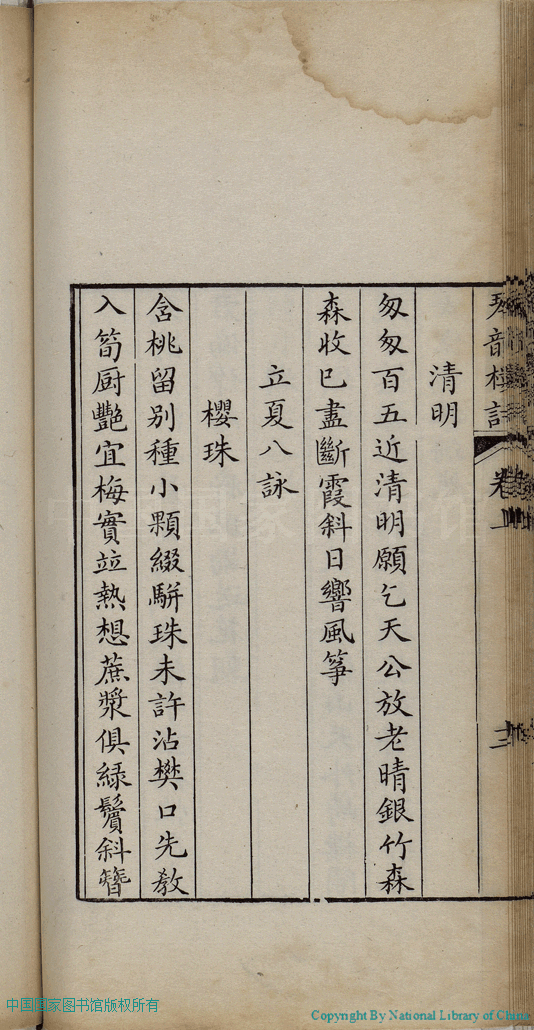 琴音標記 卷上 三
清明
匆匆百五近清明願乞天公放老晴銀竹森
森收已盡斷霞斜日響風箏
立夏八詠
櫻珠
含桃留別種小顆綴駢珠未許沾樊口先教
入筍廚艷宜梅實竝熱想蔗漿俱綠鬢斜簪
中国国家图书馆版权所有
Copyright By National Library of China